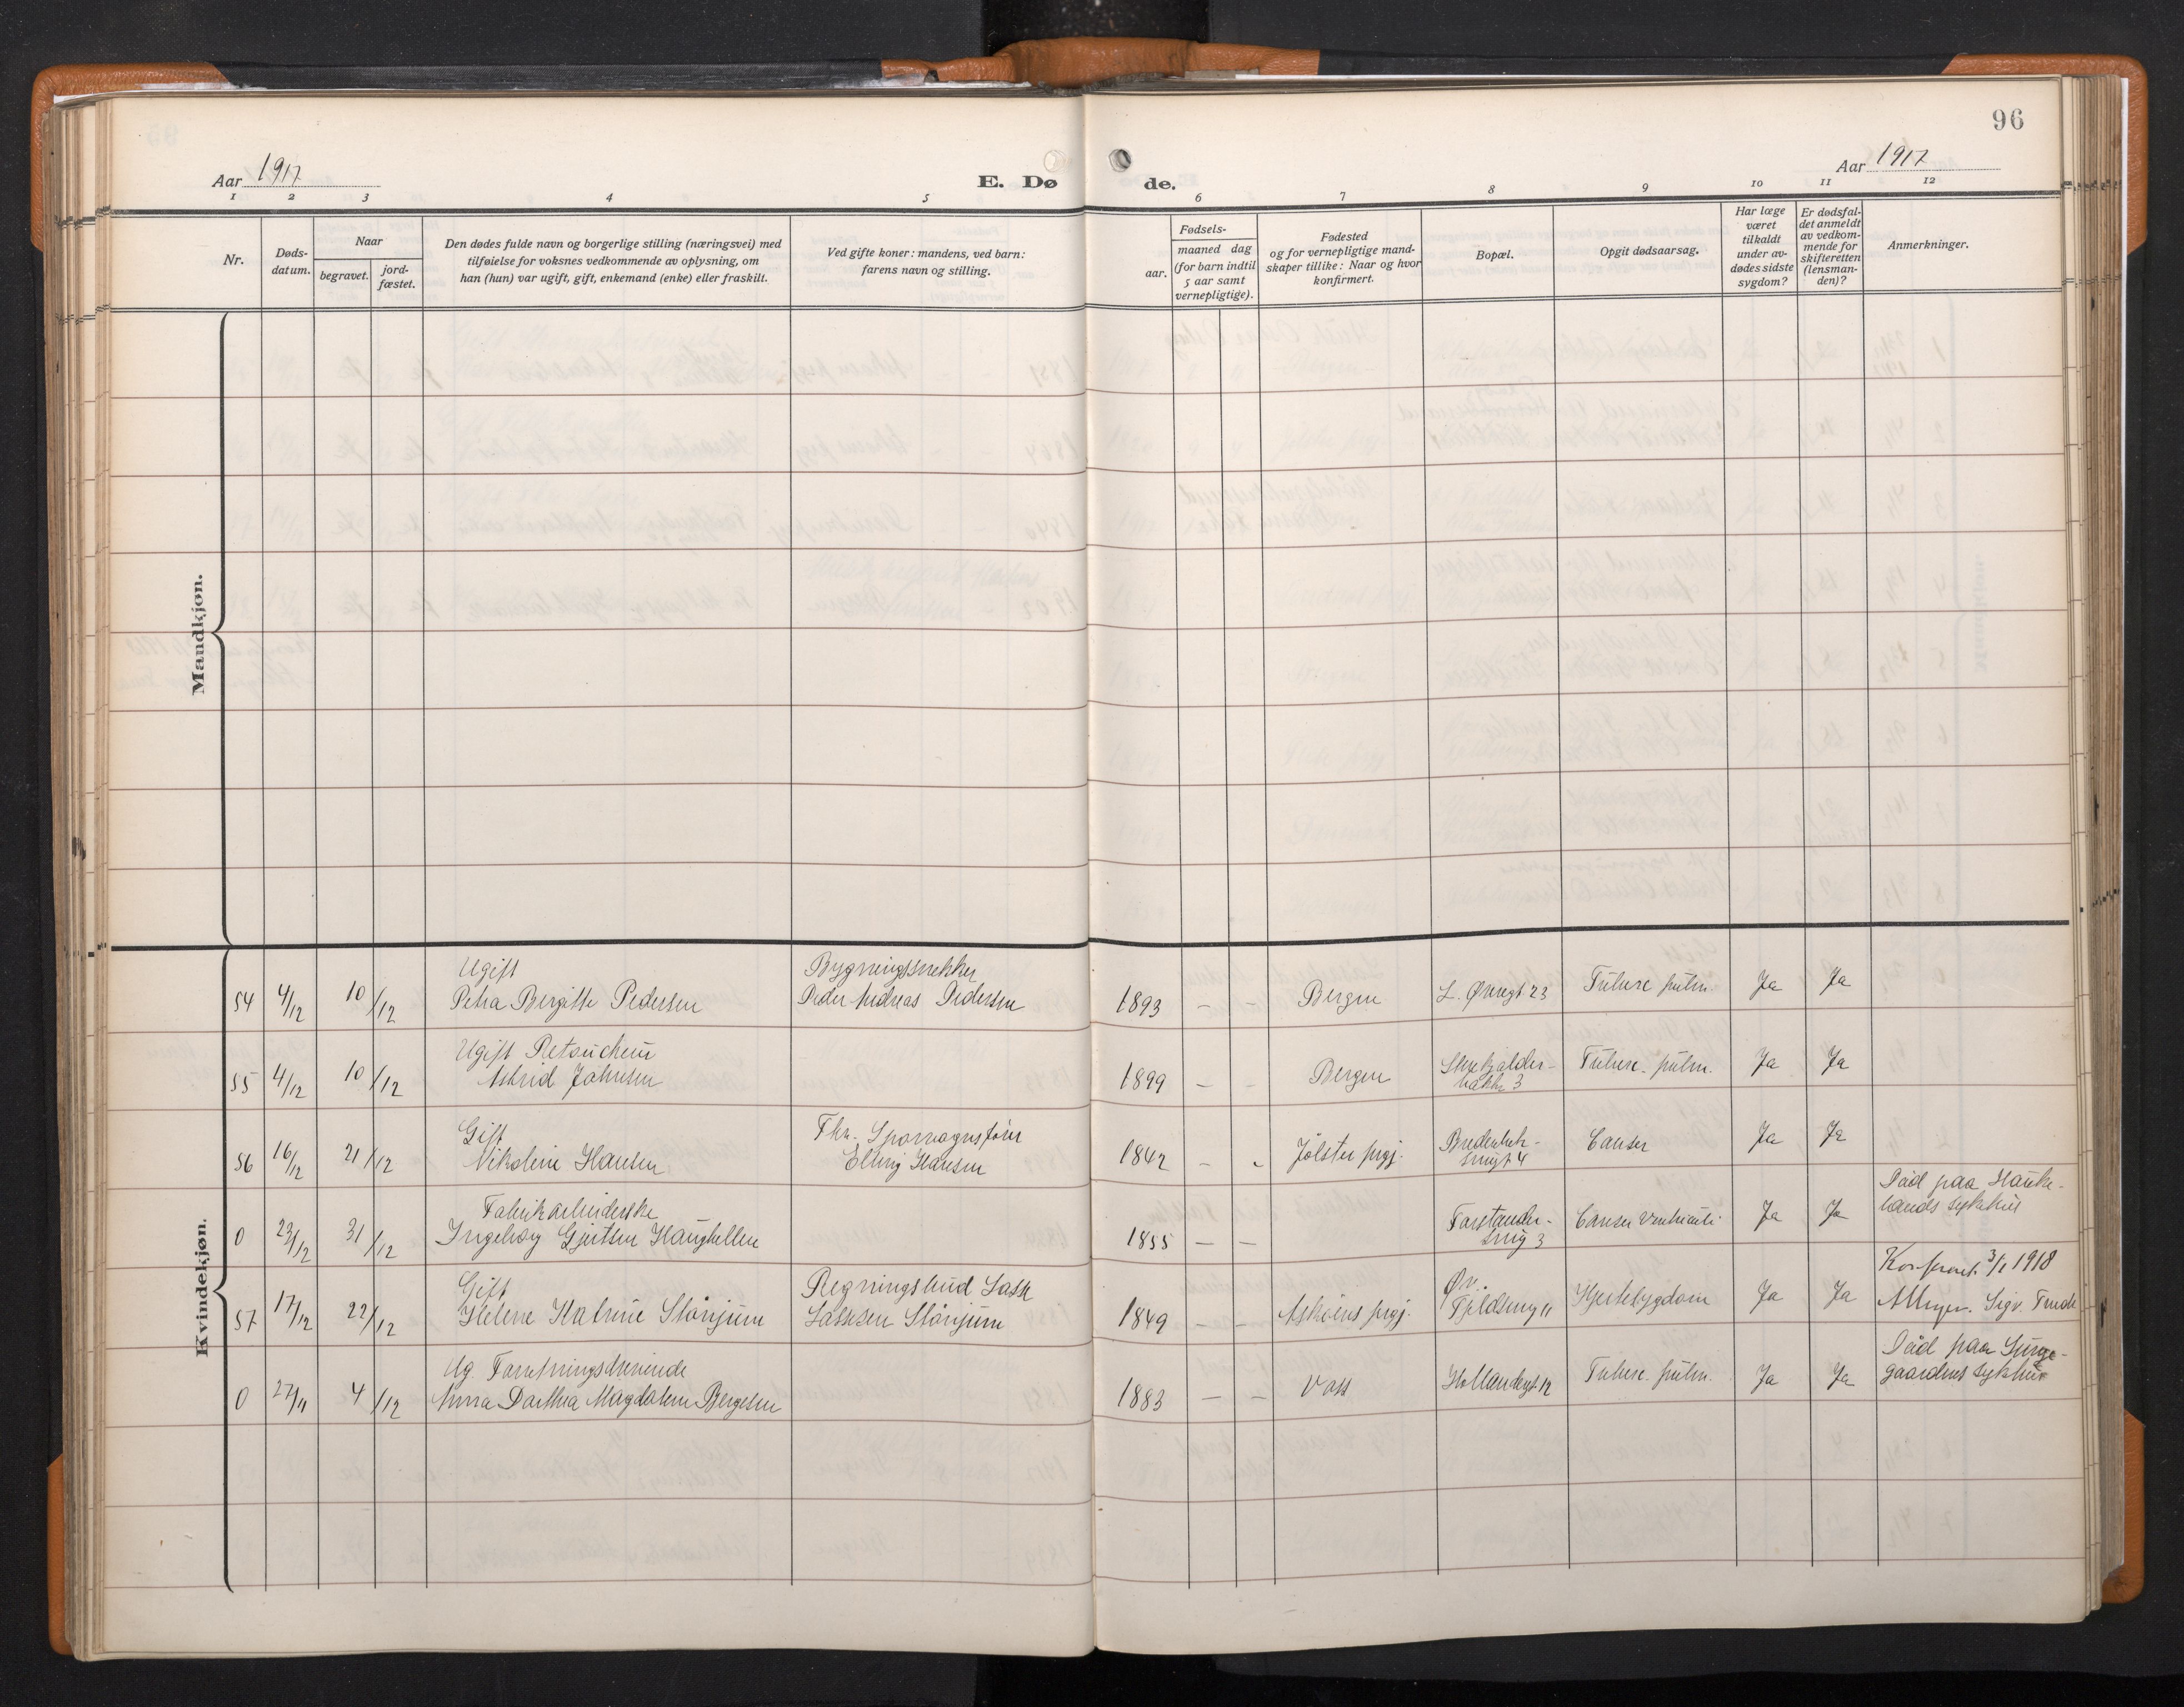 96
Aar 1917
E. Dø
de.
Aar 1917
1 2 3 4 5 6 7 8 9 10 11 12
Nr.
Døds-
datum.
Naar
begravet.
jord-
fæstet.
Den dødes fulde navn og borgerlige stilling (næringsvei) med
tilføielse for voksnes vedkommende av oplysning, om
han (hun) var ugift, gift, enkemand (enke) eller fraskilt.
Ved gifte koner: mandens, ved barn:
farens navn og stilling.
Fødsels-
aar.
maaned dag
(for barn indtil
5 aar samt
vernepligtige).
Fødested
og for vernepligtige mand-
skaper tillike: Naar og hvor
konfirmert.
Bopæl.
Opgit dødsaarsag.
Har læge
været
tilkaldt
under av-
dødes sidste
sygdom?
Er dødsfal-
det anmeldt
av vedkom-
mende for
skifteretten
(lensman-
den)?
Anmerkninger.
Mandkjøn.
Kvindekjøn.
Ugift Bygningssnekker
54 4/12 10/12 Petra Bergitte Pedersen Peder Andreas Pedersen 1893 – Bergen L. Øvregt 23 Tuberc. pulm. Ja Ja
Ugift Retouchein
55 4/12 10/12 Astrid Johnsen 1899 – – Bergen
bakke 3 Tuberc. pulm. Ja Ja
Gift Fhv. Sporvognsfører
56 16/12 21/12 Nikoline Hansen Elling Hansen 1842 – – Jølster prgj.
smugt 4 Canser Ja Ja
Fabrikarbeiderske
0 23/12 31/12 Ingeborg Gjertsen Haughellen 1855 – – Forstander-
smug 3 Canser ventriculi Ja Ja Død paa Hauke-
lands sykehus
Gift Regningsbud Lasse
57 17/12 22/12 Helene Katrine Stänjum Lassesen Stänjum 1849 – – Askøens prgj. Øv.
Fjeldsmug 11 Hjertesygdom Ja Ja Konferert 3/1 1918
Sigv.
Ug. Forretningsdrivende
0 27/11 4/12 Anna Dorthea Magdalene Bergesen 1883 – – Voss Hollendergt 12 Tuberc. pulm. Ja Ja Død paa Lunge-
gaardens sykehus